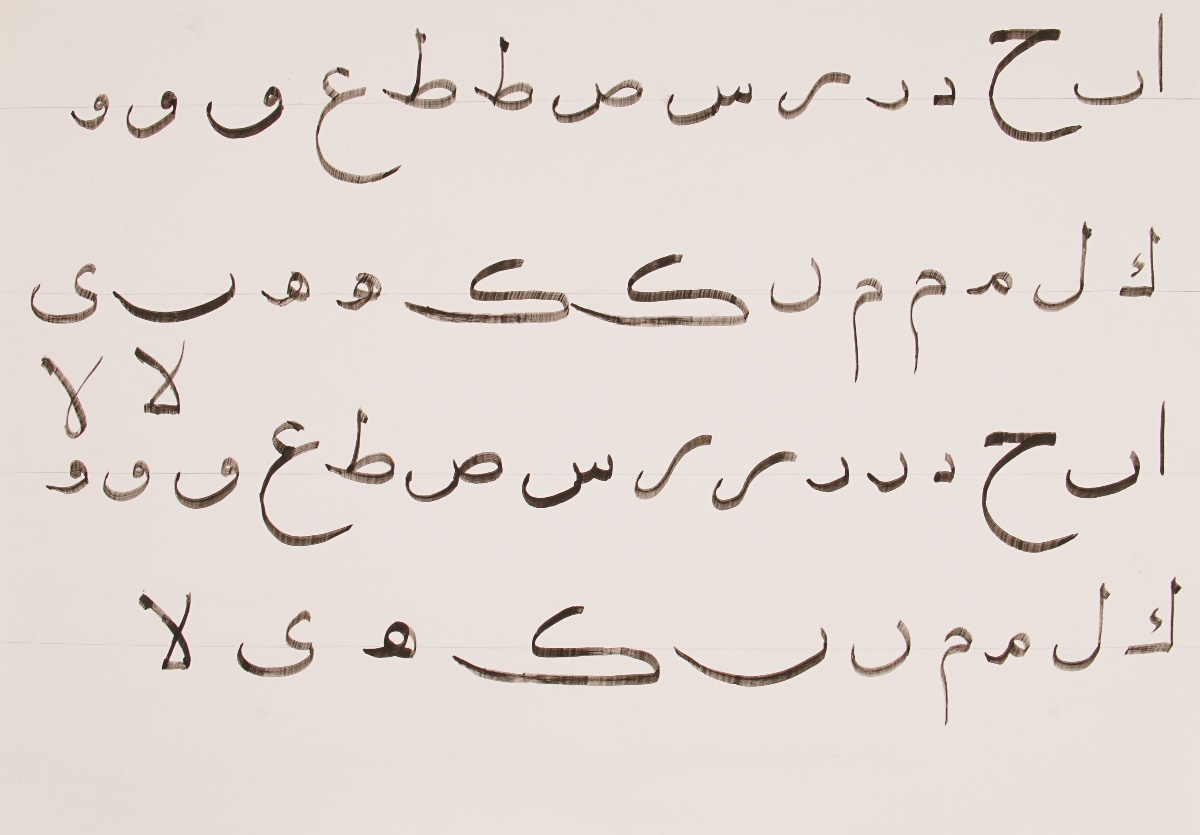 ا ں ح د ر ر س ص ط ط ع ٯ و و
ك ل م م م ں ک ک ه ه ٮ ى
لا لا
ا ں ح د ر ر ر ر س ص ط ع ٯ و و
ك ل م م ں ٮ ک ه ى لا